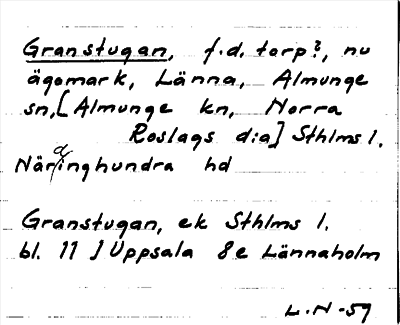 Granstugan, f.d. torp?, nu
ägomark, Länna, Almunge
sn,[Almunge kn, Norra
Roslags d:a] Sthlms l.
Närdinghundra hd
Granstugan, ek Sthlms l.
bl. 11 J Uppsala 8e Lännaholm
L.N-59